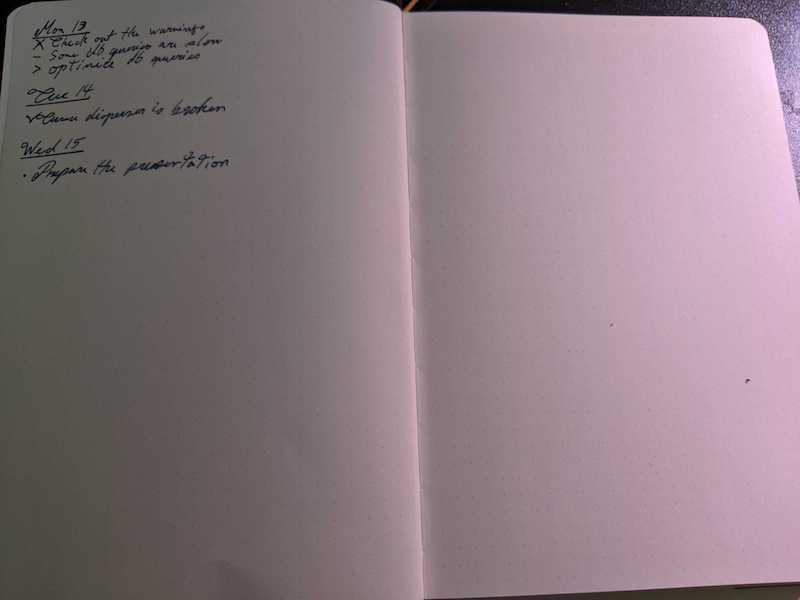 Mon 13
X Check out the warnings
- Some db queries are slow
> optimize db queries
Tue 14
is broken
Wed 15
· Prepare the presentation